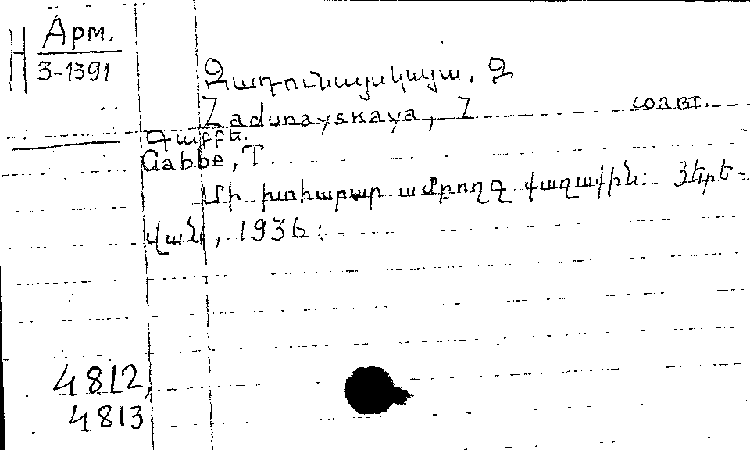 Арм.
3-1391
Զադունայսկայա, Զ
Zadunayskaya, Z соавт.
Գաբբե.
Gabbe, T
Մի խոհարար ամբողջ քաղաքին: Յերե-
վան, 1936:
4812,
4813